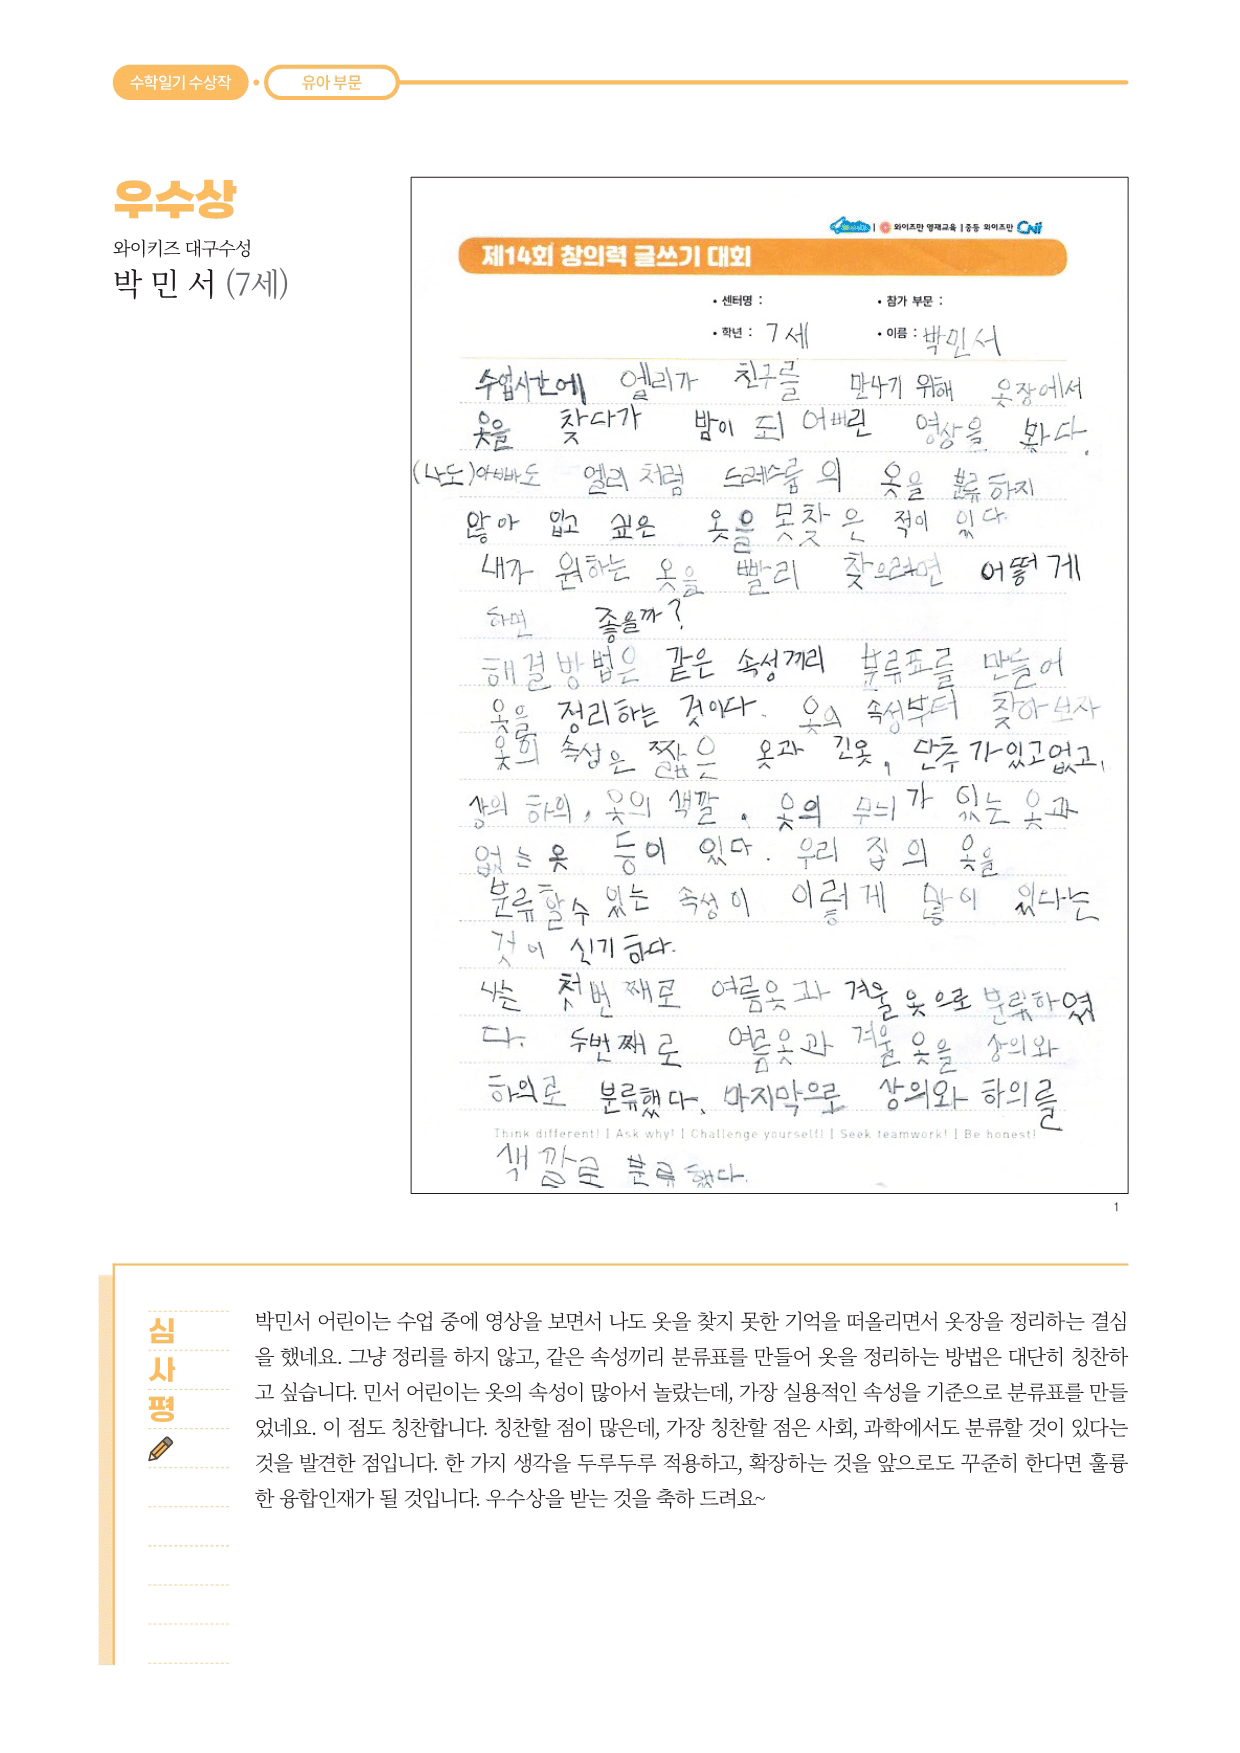 수학일기 수상작 유아 부문
우수상
와이키즈 대구수성
박 민 서 (7세)
와이즈만 영재교육 | 중등 와이즈만
제14회 창의력 글쓰기 대회
• 센터명 : • 참가 부문 :
• 학년 : 7세 • 이름 : 박민서
수업시간에 엘리가 친구를 만나기 위해 옷장에서
옷을 찾다가 밤이 되 어버린 영상을 봤다.
(나도)아빠도 엘리 처럼 드레스룸 의 옷을 분류하지
않아 입고 싶은 옷을 못찾 은 적이 있다.
내가 원하는 옷을 빨리 찾으려면 어떻게
하면 좋을까?
해결방법은 같은 속성끼리 분류표를 만들어
옷을 정리하는 것이다. 옷의 속성부터 찾아보자
옷의 속성은 짧은 옷과 긴옷, 단추가있고없고,
상의 하의, 옷의 색깔, 옷의 무늬가 있는 옷과
없는 옷 등이 있다. 우리 집의 옷을
분류할수 있는 속성이 이렇게 많이 있다는
것이 신기하다.
나는 첫번째로 여름옷과 겨울옷으로 분류하였
다. 두번째로 여름옷과 겨울 옷을 상의와
하의로 분류했다. 마지막으로 상의와 하의를
Think different! | Ask why! | Challenge yourself! | Seek teamwork! | Be honest!
색깔로 분류했다.
1
심사평
박민서 어린이는 수업 중에 영상을 보면서 나도 옷을 찾지 못한 기억을 떠올리면서 옷장을 정리하는 결심
을 했네요. 그냥 정리를 하지 않고, 같은 속성끼리 분류표를 만들어 옷을 정리하는 방법은 대단히 칭찬하
고 싶습니다. 민서 어린이는 옷의 속성이 많아서 놀랐는데, 가장 실용적인 속성을 기준으로 분류표를 만들
었네요. 이 점도 칭찬합니다. 칭찬할 점이 많은데, 가장 칭찬할 점은 사회, 과학에서도 분류할 것이 있다는
것을 발견한 점입니다. 한 가지 생각을 두루두루 적용하고, 확장하는 것을 앞으로도 꾸준히 한다면 훌륭
한 융합인재가 될 것입니다. 우수상을 받는 것을 축하 드려요~